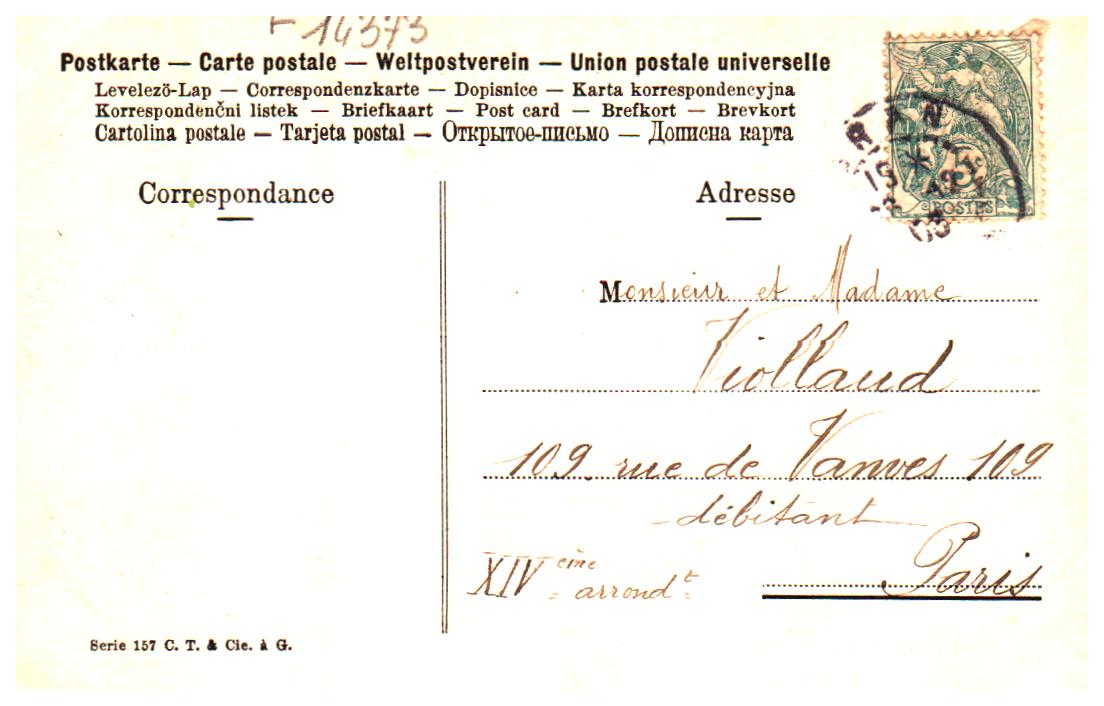 14373
Postkarte — Carte postale — Weltpostverein — Union postale universelle
Levelező-Lap — Correspondenzkarte — Dopisnice — Karta korrespondencyjna
Korrespondenčni listek — Briefkaart — Post card — Brefkort — Brevkort
Cartolina postale — Tarjeta postal — Открытое-письмо — Дописна карта
Correspondance
Adresse
5
POSTES
Monsieur et Madame
Viollaud
109. rue de Vanves 109
débitant
Paris
XIV eme arrondt
Serie 157 C. T. & Cie. à G.